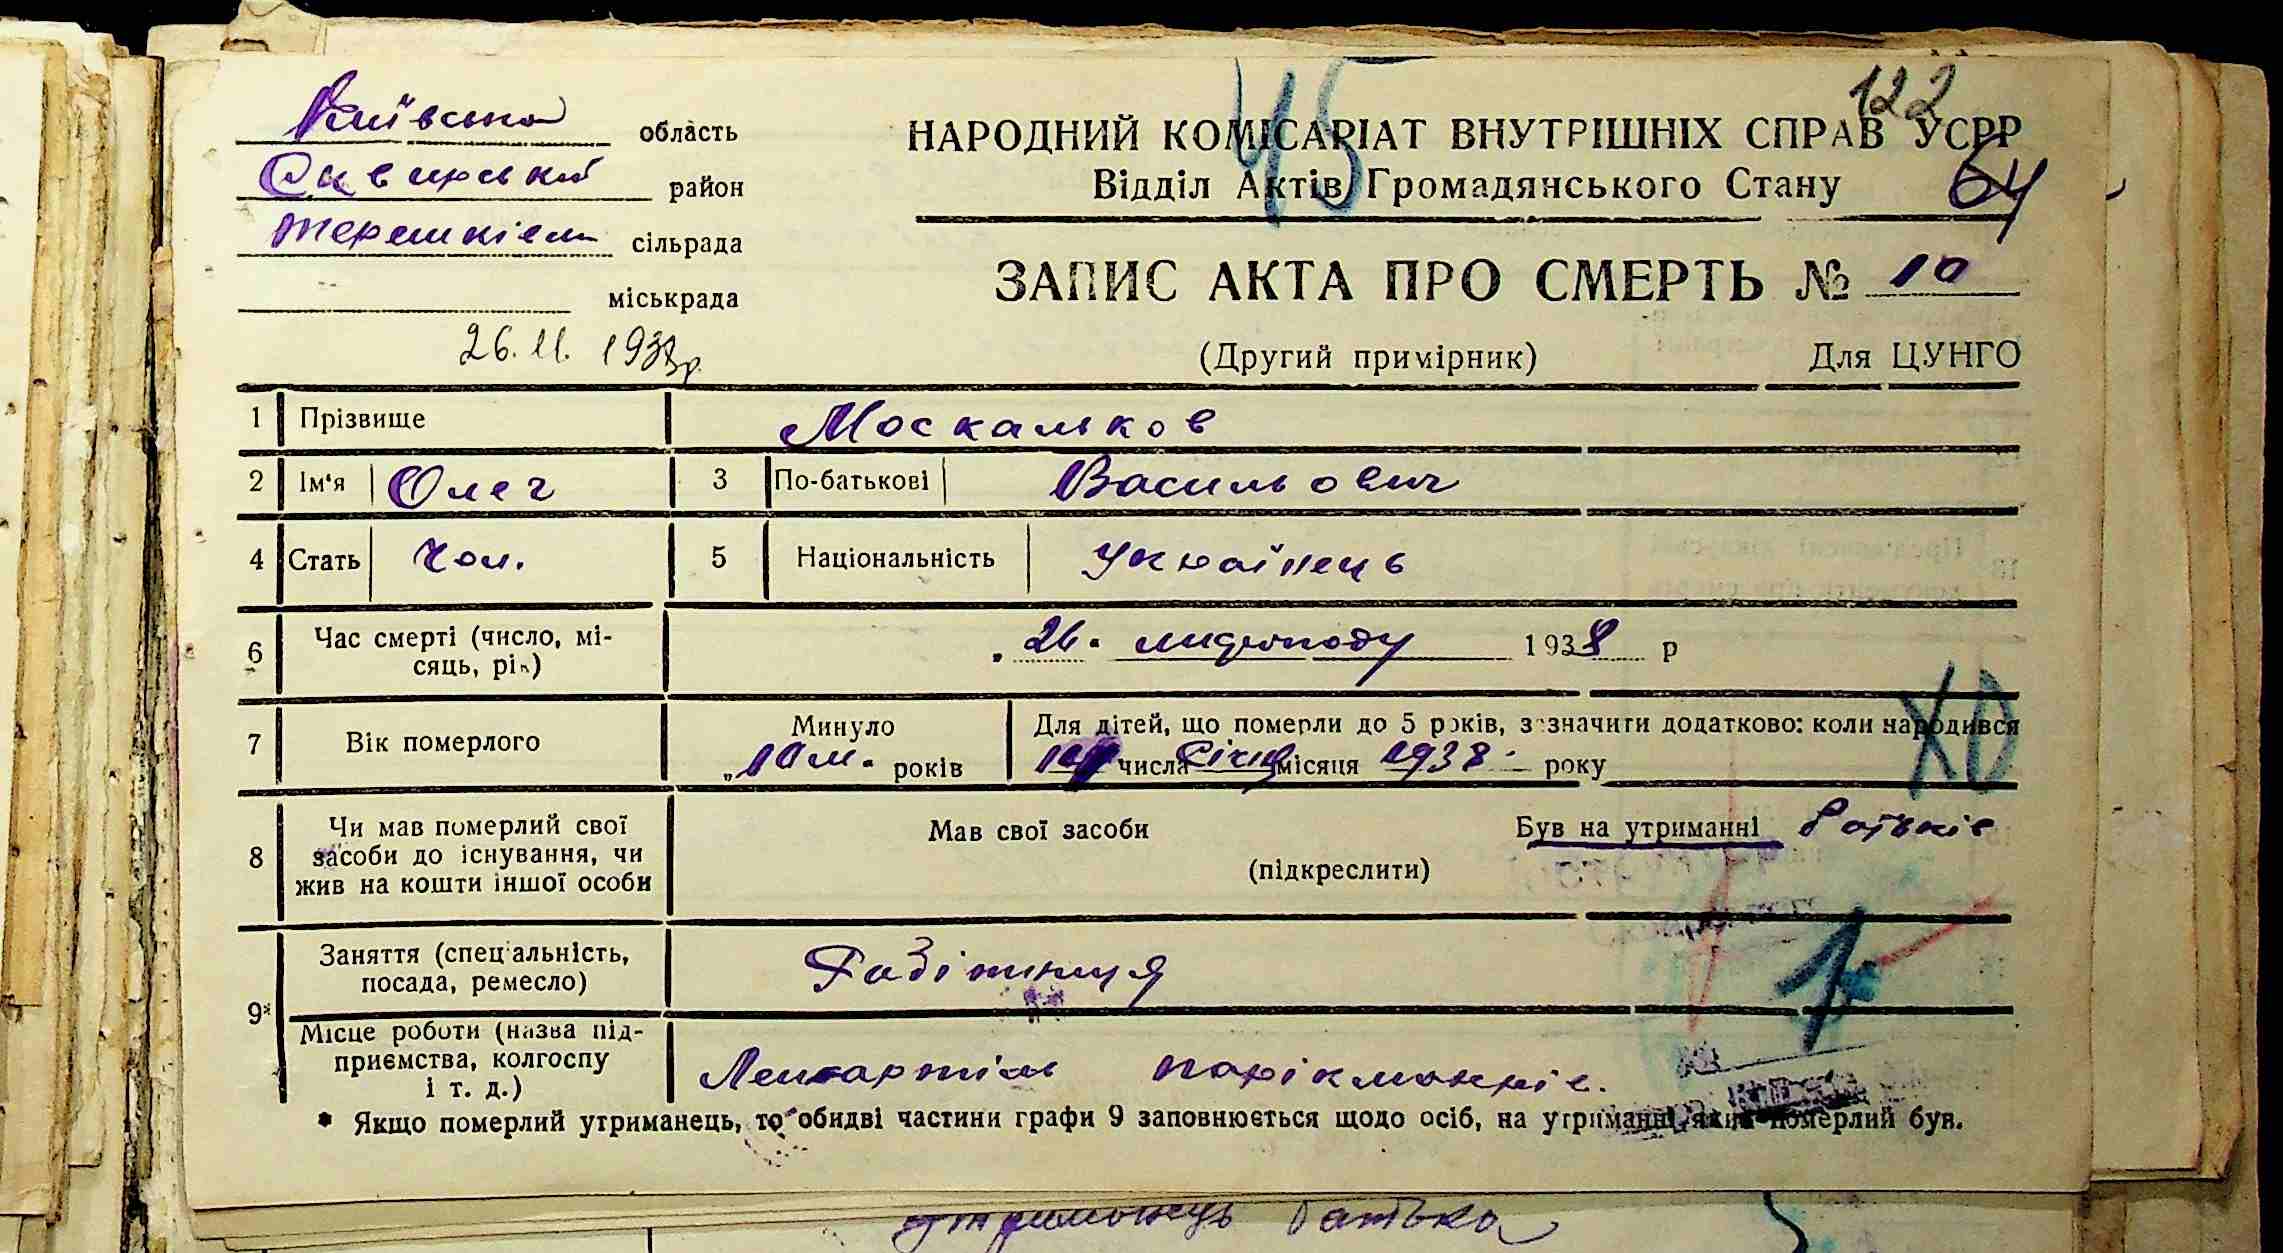 122
45
Київська область
Сквирський район
Терешківська сільрада
міськрада
НАРОДНИЙ КОМІСАРІАТ ВНУТРІШНІХ СПРАВ УСРР
Відділ Актів Громадянського Стану
64
ЗАПИС АКТА ПРО СМЕРТЬ № 10
26.11.1938 р.
(Другий примірник) Для ЦУНГО
1 Прізвище Москальков
2 Ім'я Олег 3 По-батькові Васильович
4 Стать Чол. 5 Національність Українець
6 Час смерті (число, мі-
сяць, рік) „26" листопаду 1938 р
7 Вік померлого Минуло
„10 м." років
Для дітей, що померли до 5 років, зазначити додатково: коли народився
числа Січня місяця 1938 року
ХО
8 Чи мав померлий свої
засоби до існування, чи
жив на кошти іншої особи
Мав свої засоби Був на утриманні батьків
(підкреслити)
9* Заняття (спеціальність,
посада, ремесло) Робітниця
1
Місце роботи (назва під-
приємства, колгоспу
і т. д.) парікмахрів.
* Якщо померлий утриманець, то обидві частини графи 9 заповнюється щодо осіб, на утриманні яких померлий був.
утриманець батька